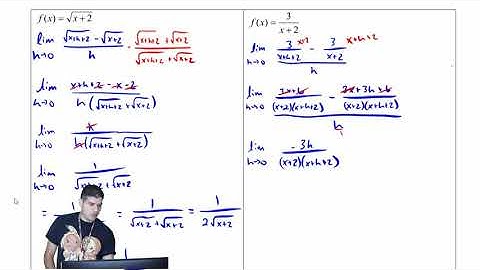 f(x) = √(x+2)
lim h→0 (√(x+h+2) - √(x+2))/h · (√(x+h+2) + √(x+2))/(√(x+h+2) + √(x+2))
lim h→0 (x+h+2 - x - 2)/(h(√(x+h+2) + √(x+2)))
lim h→0 h/(h(√(x+h+2) + √(x+2)))
lim h→0 1/(√(x+h+2) + √(x+2))
= 1/(√(x+2) + √(x+2)) = 1/(2√(x+2))
f(x) = 3/(x+2)
lim h→0 (3/(x+h+2) x+2 - 3/(x+2) x+h+2)/h
lim h→0 (3x+6/((x+2)(x+h+2)) - 3x+3h+6/((x+2)(x+h+2)))/h
1
lim h→0 -3h/((x+2)(x+h+2))